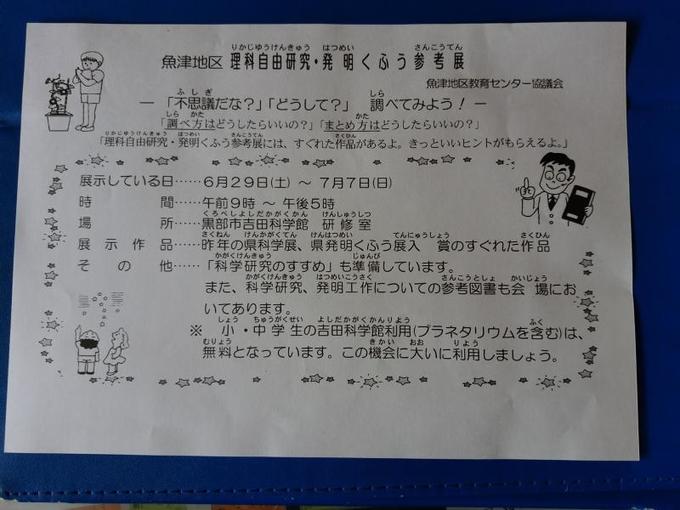 魚津地区 理科自由研究・発明くふう参考展
魚津地区教育センター協議会
― 「不思議だな?」「どうして?」 調べてみよう! ―
「調べ方はどうしたらいいの?」「まとめ方はどうしたらいいの?」
「理科自由研究・発明くふう参考展には、すぐれた作品があるよ。きっといいヒントがもらえるよ。」
展示している日……6月29日(土) ~ 7月7日(日)
時間……午前9時 ~ 午後5時
場所……黒部市吉田科学館 研修室
展示作品……昨年の県科学展、県発明くふう展入賞のすぐれた作品
その他……「科学研究のすすめ」も準備しています。
また、科学研究、発明工作についての参考図書も会場にお
いてあります。
※ 小・中学生の吉田科学館利用(プラネタリウムを含む)は、
無料となっています。この機会に大いに利用しましょう。